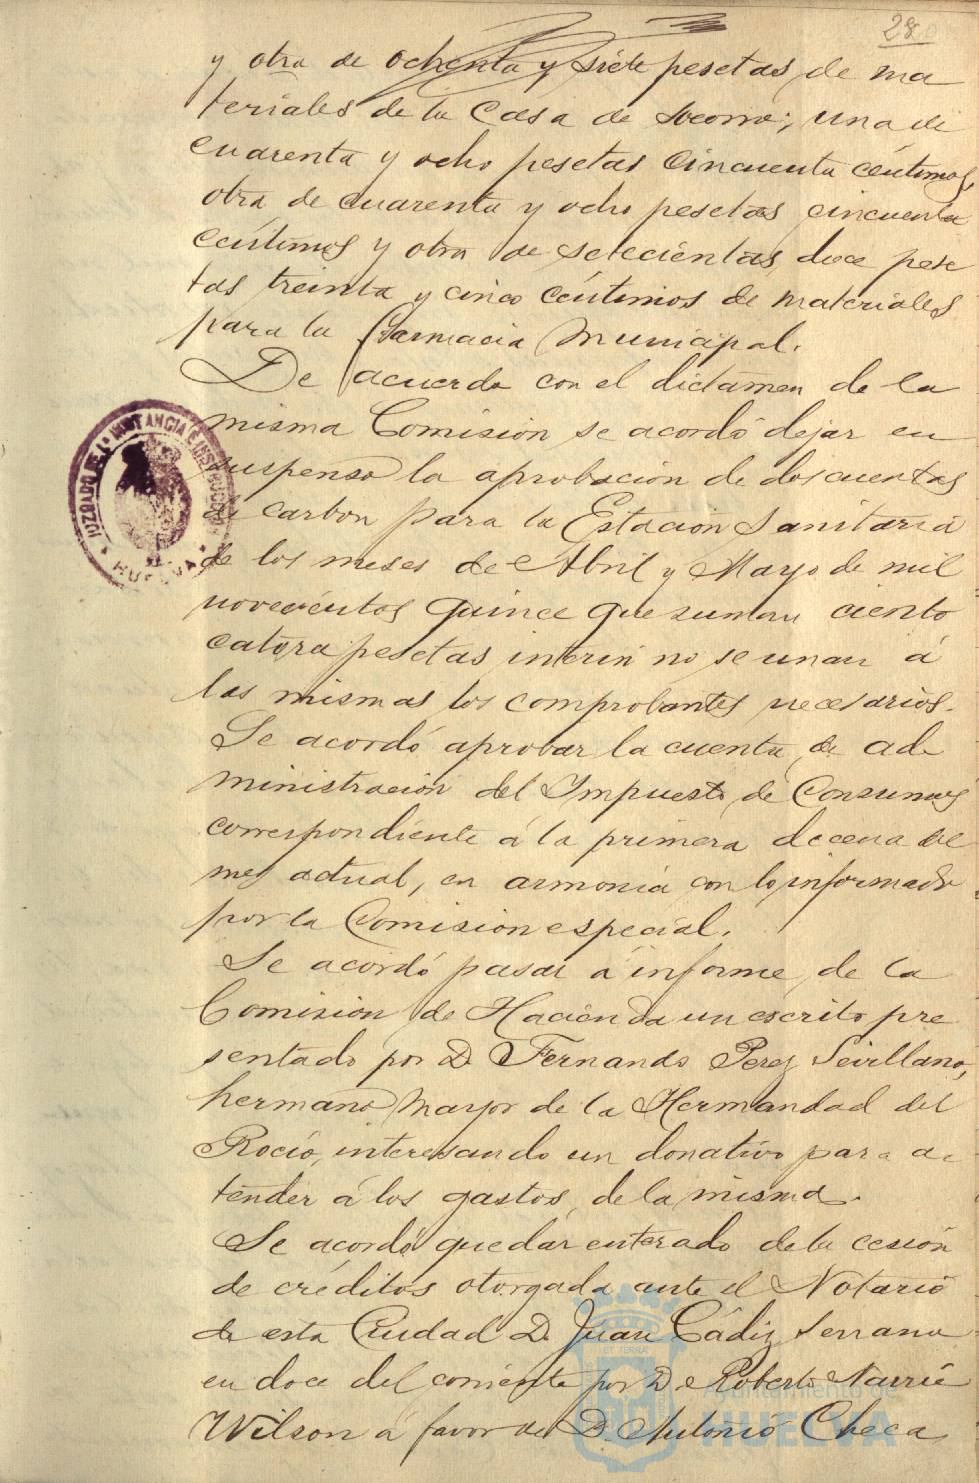 28
y otra de ochenta y siete pesetas de ma
teriales de la Casa de Socorro; una de
cuarenta y ocho pesetas cincuenta céntimos,
otra de cuarenta y ocho pesetas cincuenta
céntimos y otra de setecientas doce pese
tas treinta y cinco céntimos de materiales
para la Farmacia Municipal.
De acuerdo con el dictamen de la
misma Comisión se acordó dejar en
suspenso la aprobación de dos cuentas
de carbon para la Estación Sanitaria
de los meses de Abril y Mayo de mil
novecientos quince que suman ciento
catorce pesetas interin no se unan á
las mismas los comprobantes necesarios.
Se acordó aprobar la cuenta de ad
ministración del Impuesto de Consumos
correspondiente á la primera decena del
mes actual, en armonia con lo informado
por la Comisión especial.
Se acordó pasar á informe de la
Comisión de Hacienda un escrito pre
sentado por D. Fernando Perez Sevillano,
hermano mayor de la Hermandad del
Rocío, interesando un donativo para a
tender á los gastos de la misma.
Se acordó quedar enterado de la cesión
de créditos otorgada ante el Notario
de esta Ciudad D. Juan Cádiz Serrano
en doce del corriente por D. Roberto
Wilson á favor de D. Antonio Checa
JUZGADO DE 1ª INSTANCIA É INSTRUCCION
HUELVA
Ayuntamiento de
HUELVA